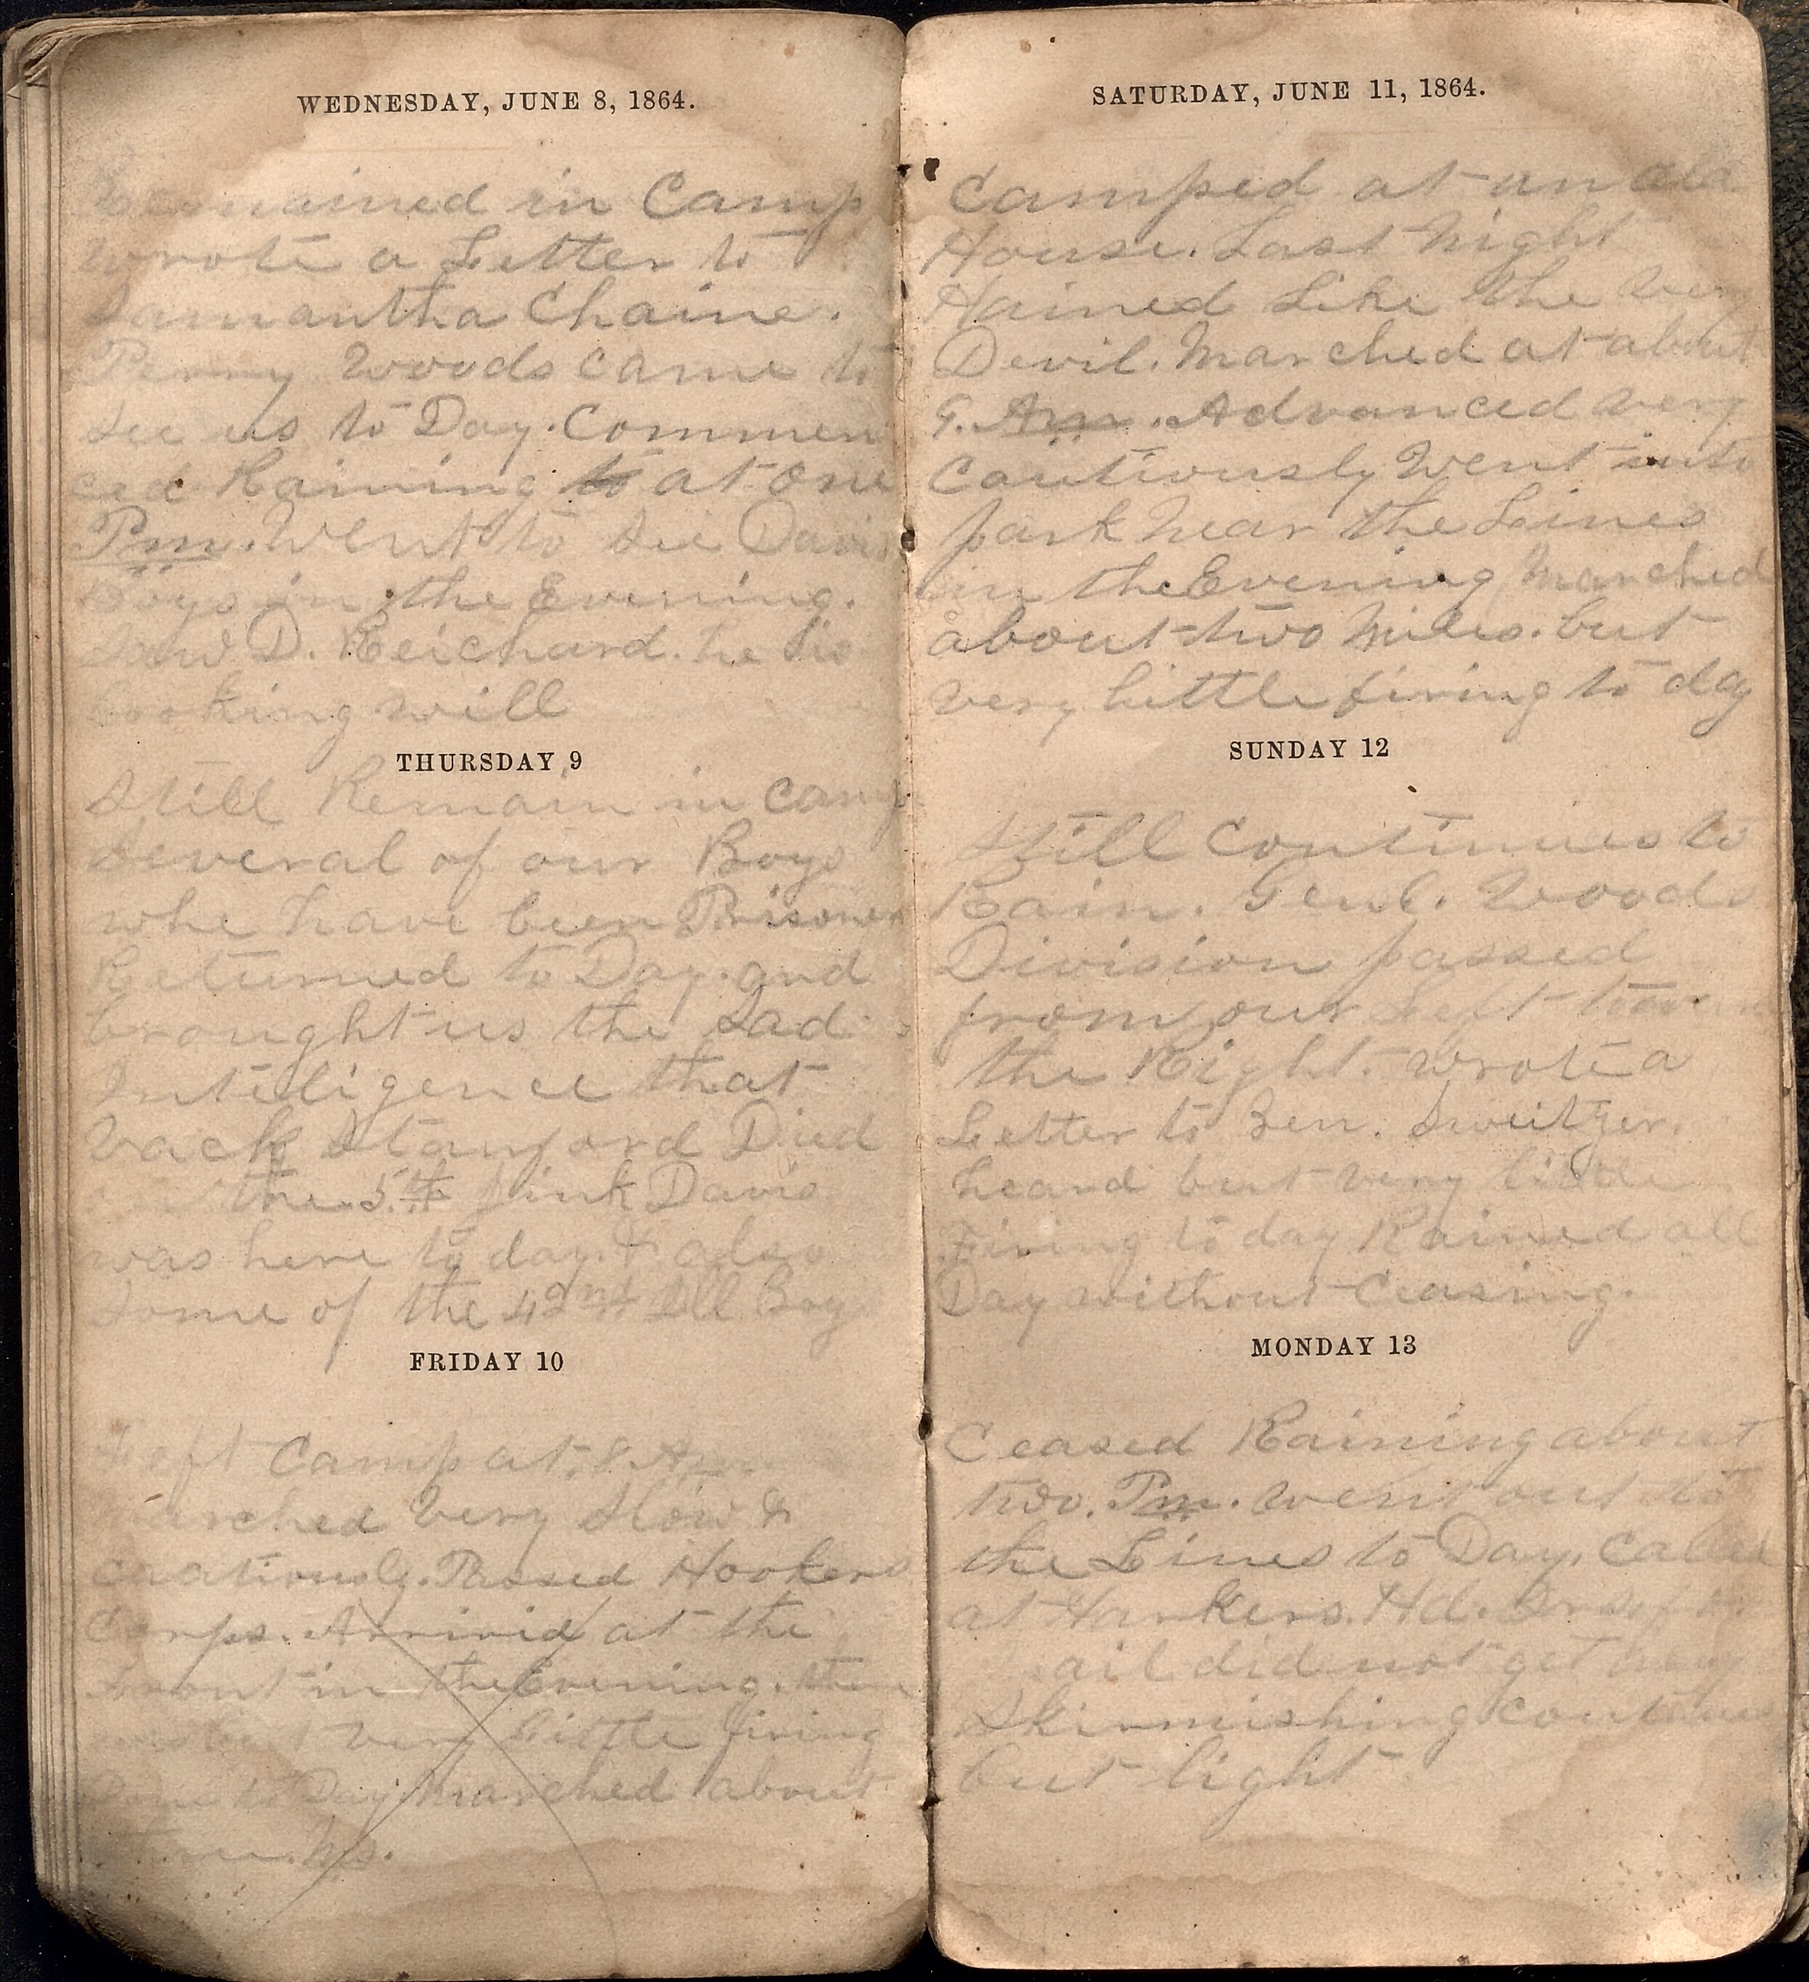 WEDNESDAY, JUNE 8, 1864.
Remained in Camp
wrote a Letter to
Samantha Chaine.
Perry Woods came to
see us to Day. Commen
ced Raining to at one
Pm. Went to see Davis
Boys in the Evening.
Saw D. Reichard. he is
looking well
THURSDAY 9
Still Remain in camp
Several of our Boys
who have been Prisoner
Returned to Day. and
brought us the Sad
Inteligence that
Stanford Died
the 5th Davis
was here to day. & also
some of the 42nd Ill Boys
FRIDAY 10
Left Camp at. 8. Am.
Marched very Slow &
Passed Hookers
Corps. Arrived at the
front in the Evening. there
was but very little firing
Done to Day marched about
ms.
SATURDAY, JUNE 11, 1864.
Camped at an old
House. Last Night
Rained Like the very
Devil. Marched at about
Am. Advanced very
Cautiously Went into
park Near the Lines
in the Evening Marched
about two Miles. but
very little firing to day
SUNDAY 12
Still Continues to
Rain. Genl. Woods
Division passed
from our Left
the Right. wrote a
Letter to Ben. Sweitzer.
heard but very little
Firing to day Rained all
Day without Ceasing.
MONDAY 13
Ceased Raining about
two. Pm. went out to
the Lines to Day. Called
at Harkers. Hd.
did not get any
Skirmishing continues
but light